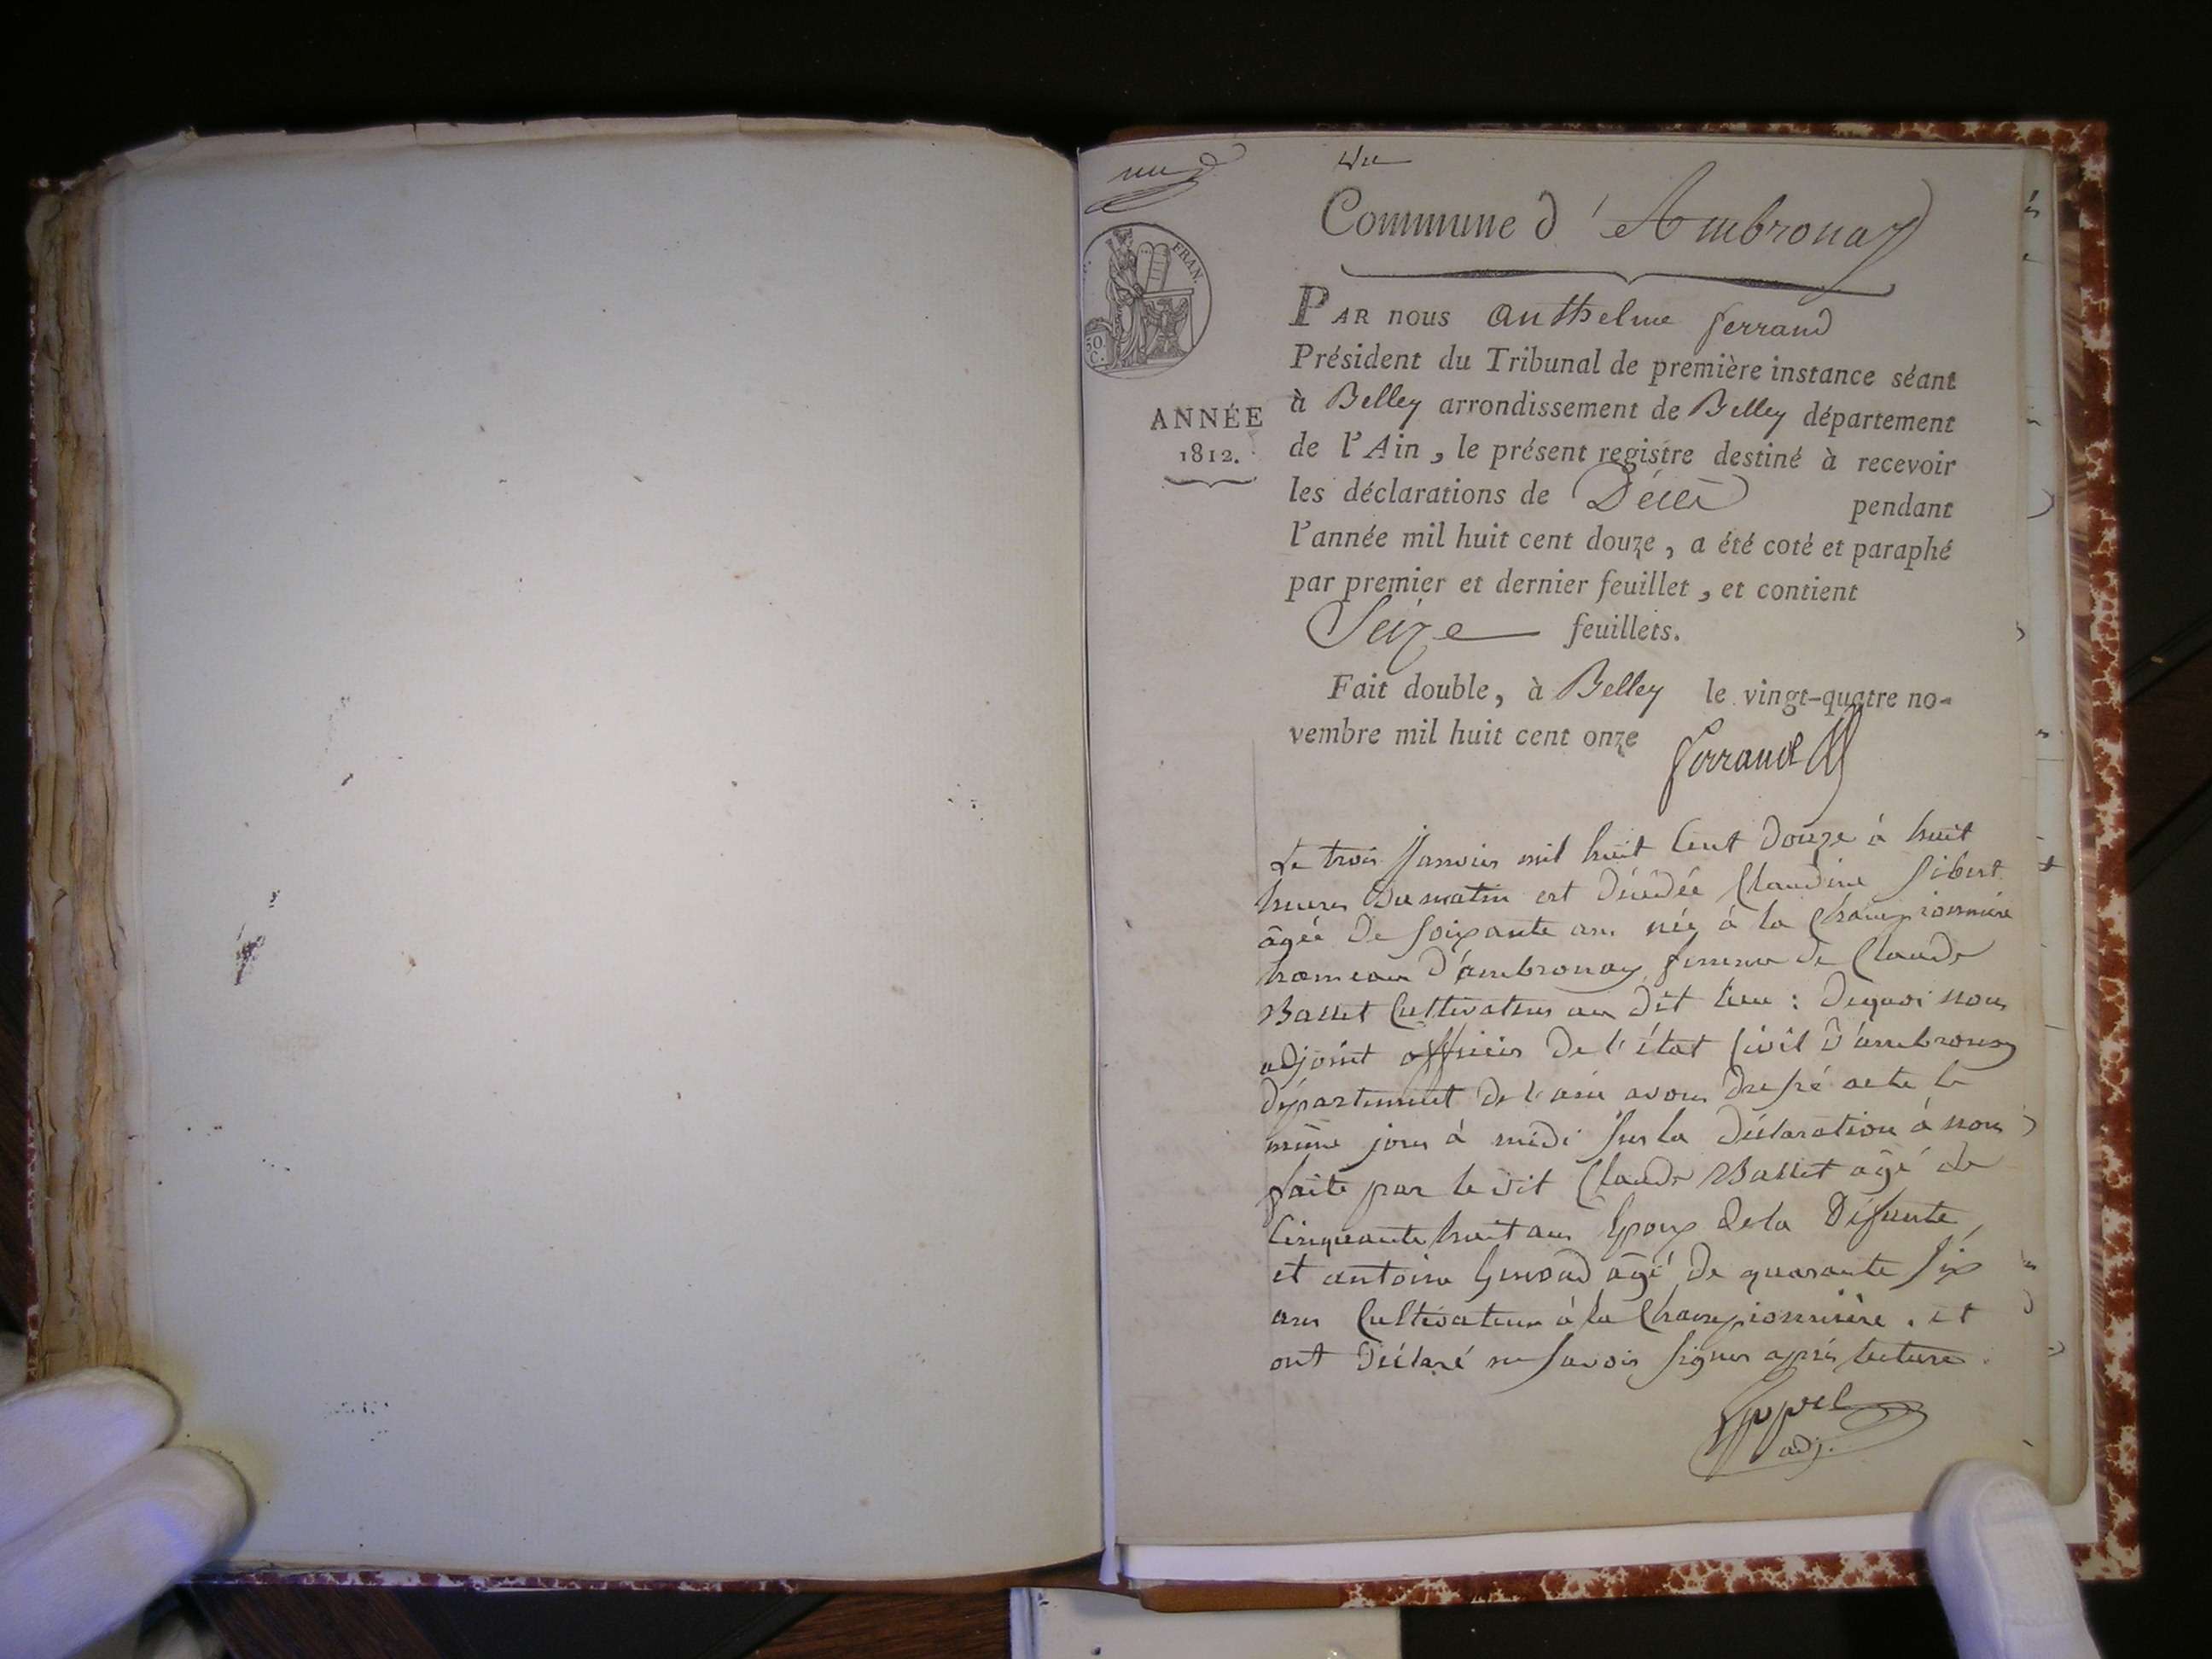 Commune d'Ambronay
FRAN.
50
C.
PAR nous anthelme ferrand
Président du Tribunal de première instance séant
à Belley arrondissement de Belley département
ANNÉE
1812.
de l'Ain, le présent registre destiné à recevoir
les déclarations de Décès pendant
l'année mil huit cent douze, a été coté et paraphé
par premier et dernier feuillet, et contient
Seize feuillets.
Fait double, à Belley le vingt-quatre no-
vembre mil huit cent onze
ferrand
Le trois Janvier mil huit Cent Douze à huit
heures Du matin est Décédée Claudine Sibert
âgée De soixante ans née à la Championnière
hameau d'ambronay femme de Claude
Basset Cultivateur au dit lieu : Dequoi nous
adjoint officier De l'état Civil d'ambronay
département de l'ain avons Dressé acte le
même jour à midi sur la Déclaration à nous
faite par le dit Claude Basset agé de
Cinquante huit ans Epoux de la Défunte,
et antoine Genoud agé De quarante six
ans Cultivateur à la Championnière. et
ont Déclaré ne savoir signer après lecture.
adj.